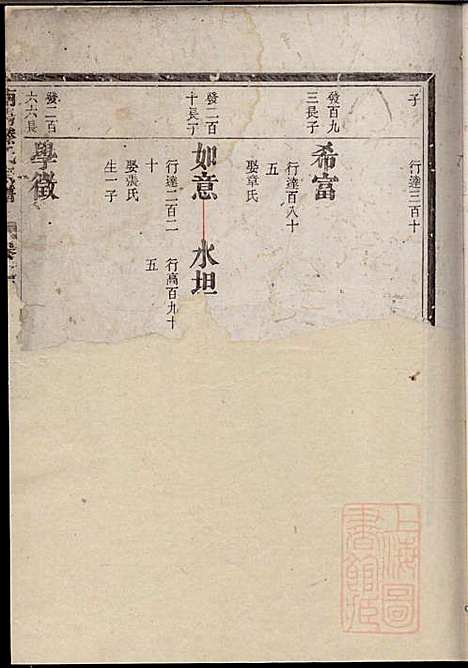 子
行達三百十
發百九
三長子
希富
行達百八十
五
娶章氏
發二百
十長子
如意
水坦
行達二百二
十
娶張氏
生一子
行高百九十
五
發二百
六六長
學徵
上海圖
書館藏